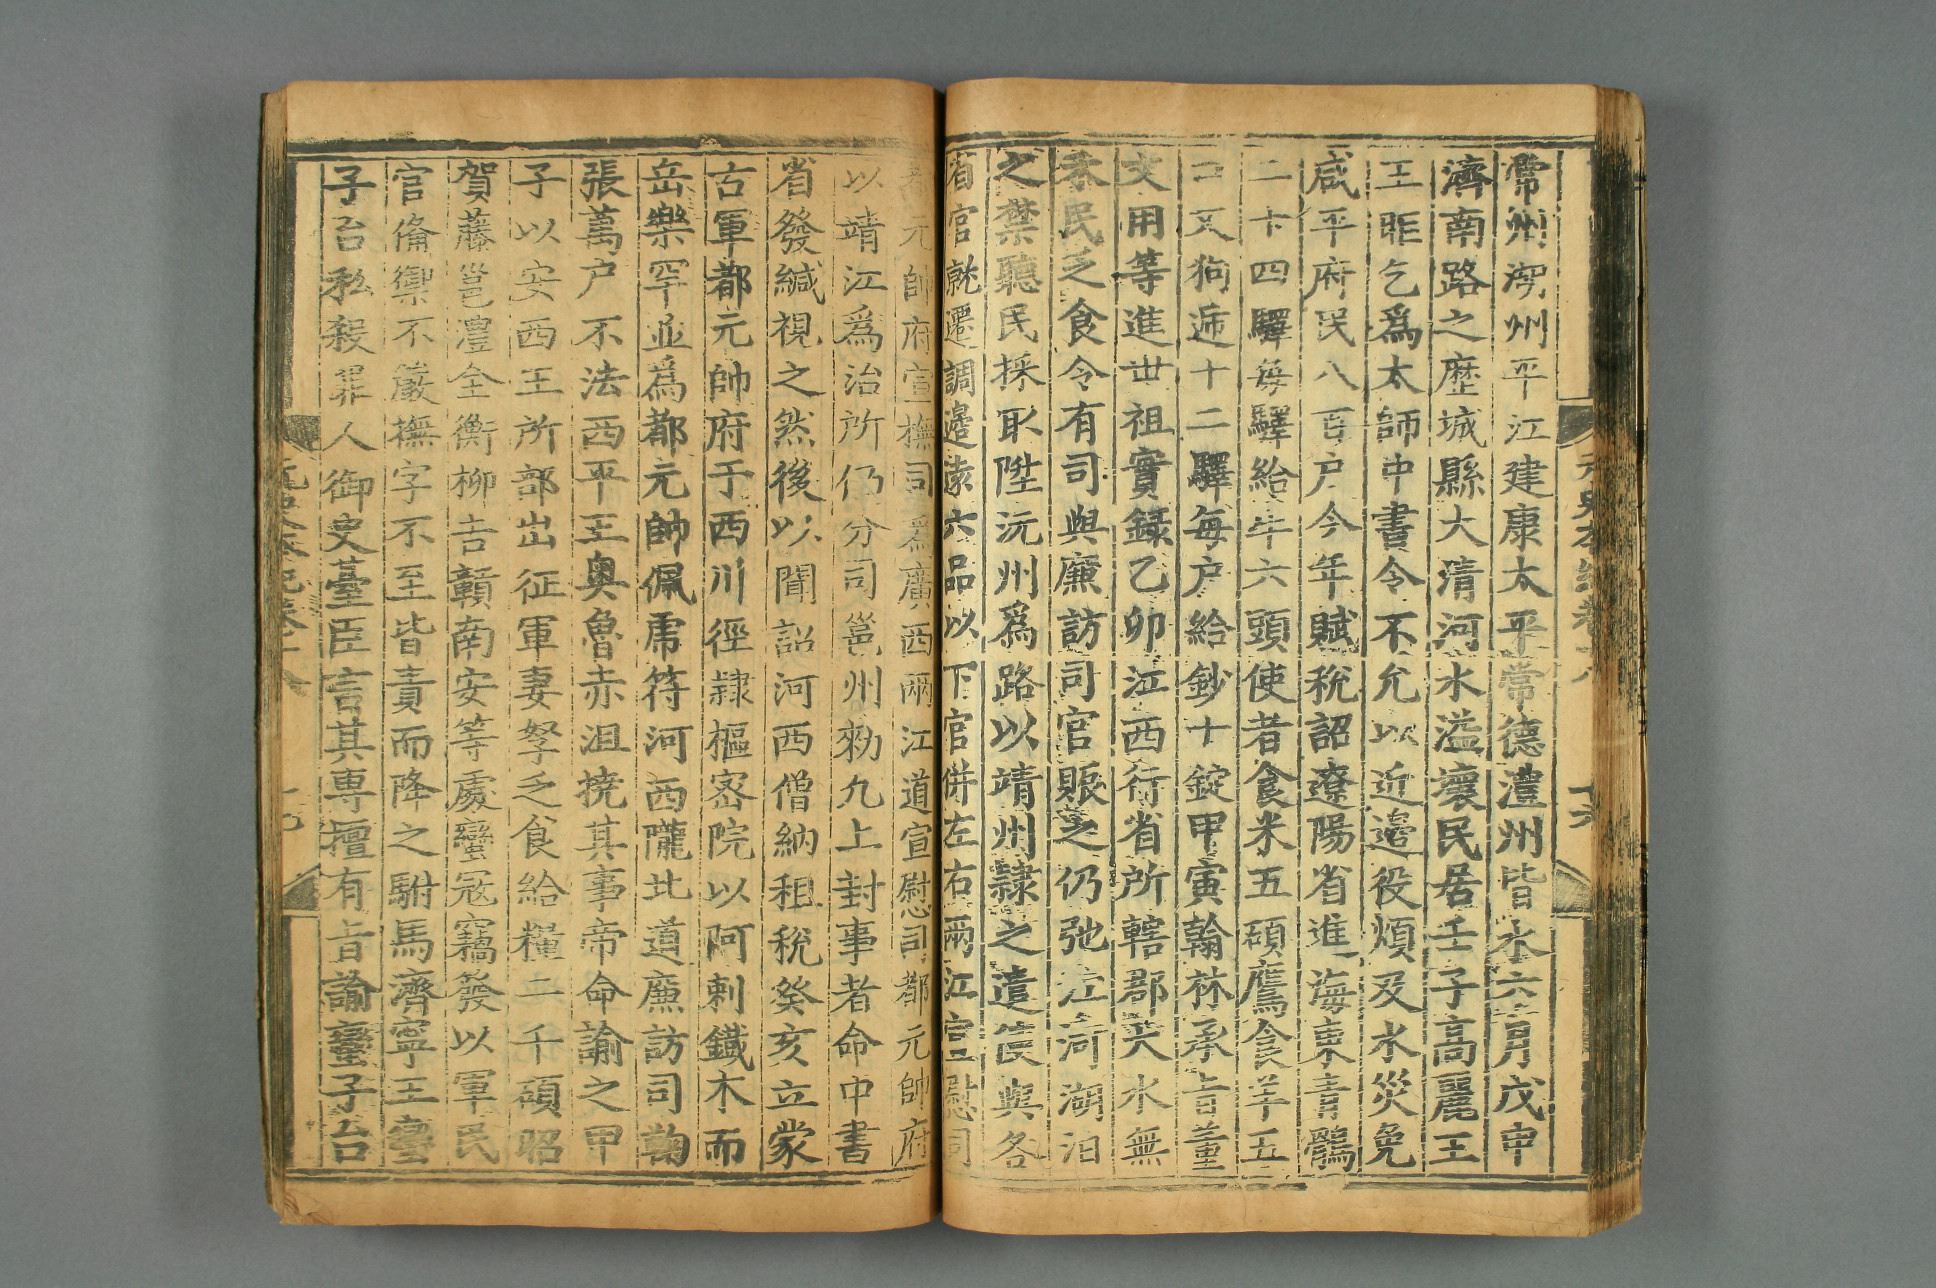 常州澇州平江建康太平常德澧州皆水六月戊申
濟南路之歷城縣大清河水溢壞民居壬子高麗王
王昛乞爲太師中書令不允以近邊役煩及水災免
咸平府民八百户今年賦稅詔遼陽省進海東青鶻
二十四驛每驛給牛六頭使者食米五碩鷹食羊五
口又狗遞十二驛每户給鈔十錠甲寅翰林承旨董
文用等進世祖實録乙卯江西行省所轄郡大水無
禾民乏食令有司與廉訪司官賑之仍弛江河湖泊
之禁聽民採取陞沅州爲路以靖州隸之遣使與各
省官就遷調邊遠六品以下官併左右兩江宣慰司
都元帥府宣撫司爲廣西兩江道宣慰司都元帥府
以靖江爲治所仍分司邕州勑九上封事者命中書
省發緘視之然後以聞詔河西僧納租稅癸亥立蒙
古軍都元帥府于西川徑隸樞密院以阿剌鐵木而
岳樂罕並爲都元帥佩虎符河西隴北道廉訪司鞫
張萬户不法西平王奥魯赤沮撓其事帝命諭之甲
子以安西王所部出征軍妻孥乏食給糧二千碩昭
賀藤邕澧全衡柳吉贛南安等處蠻冦竊發以軍民
官備禦不嚴撫字不至皆責而降之駙馬濟寧王蠻
子台私殺罪人御史臺臣言其專擅有旨諭蠻子台